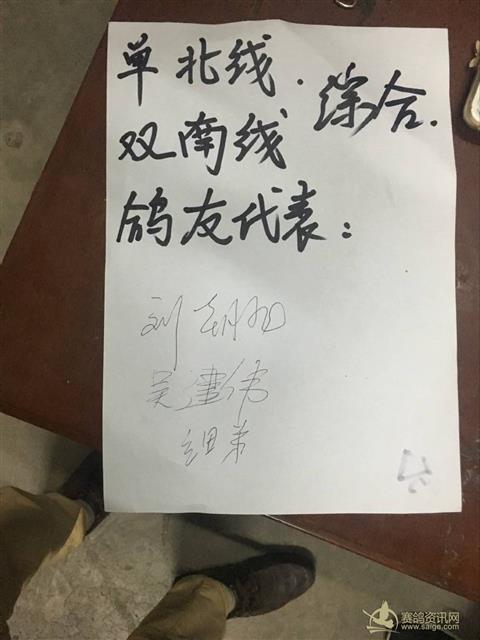 单北线.
综合.
双南线
鸽友代表：
刘
吴建伟
细弟
赛鸽资讯网
www.saige.com